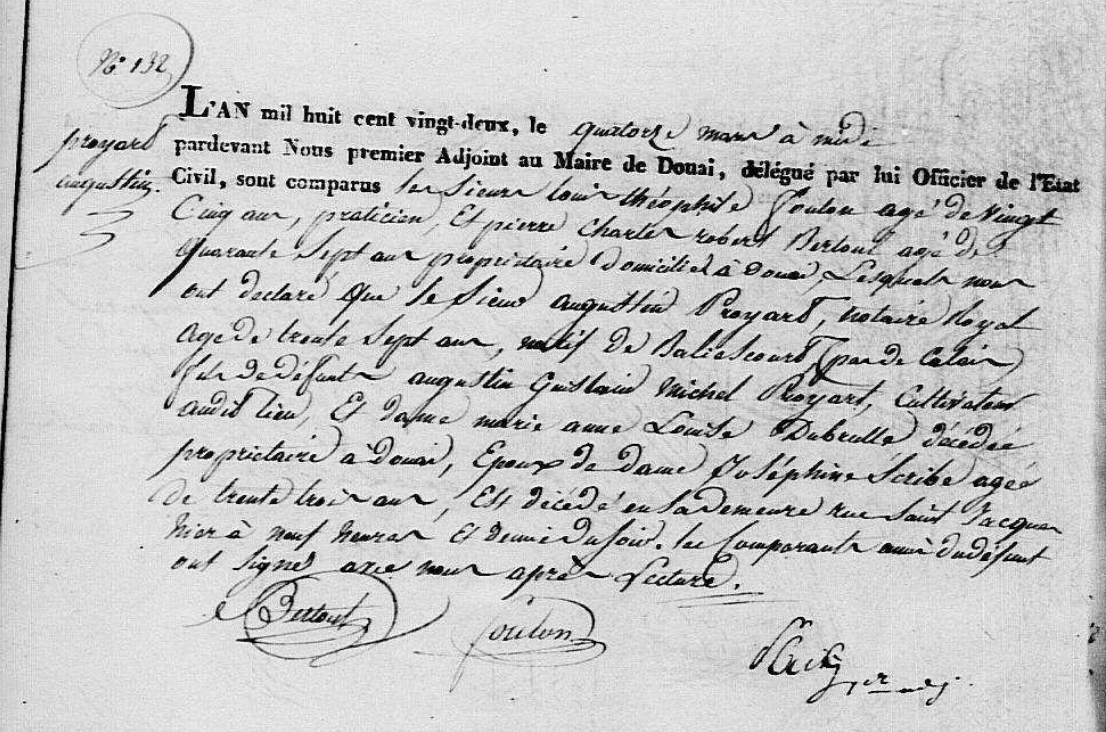 N.° 132
proyart
augustin.
L'AN mil huit cent vingt-deux, le quatorze mars à midi
pardevant Nous premier Adjoint au Maire de Douai, délégué par lui Officier de l'Etat
Civil, sont comparus les Sieurs Louis théophile Foulon agé de Vingt
Cinq ans, praticien, Et pierre Charles robert Bertout agé de
quarante Sept ans propriétaire domiciliés à Douai, Lesquels nous
ont declaré que le Sieur augustin Proyart, notaire Royal
agé de trente Sept ans, natif de (pas de Calais)
fils de défunts augustin Guislain Michel Proyart, Cultivateur
audit lieu, Et dame marie anne Louise Dubrulle décédée
propriétaire à Douai, Epoux de dame Joséphine Scribe agée
de trente trois ans, Est décédé en Sa demeure rue Saint Jacques
hier à neuf heures Et demie du soir. les Comparants amis du défunt
ont Signé avec nous après Lecture.
Bertout Foulon